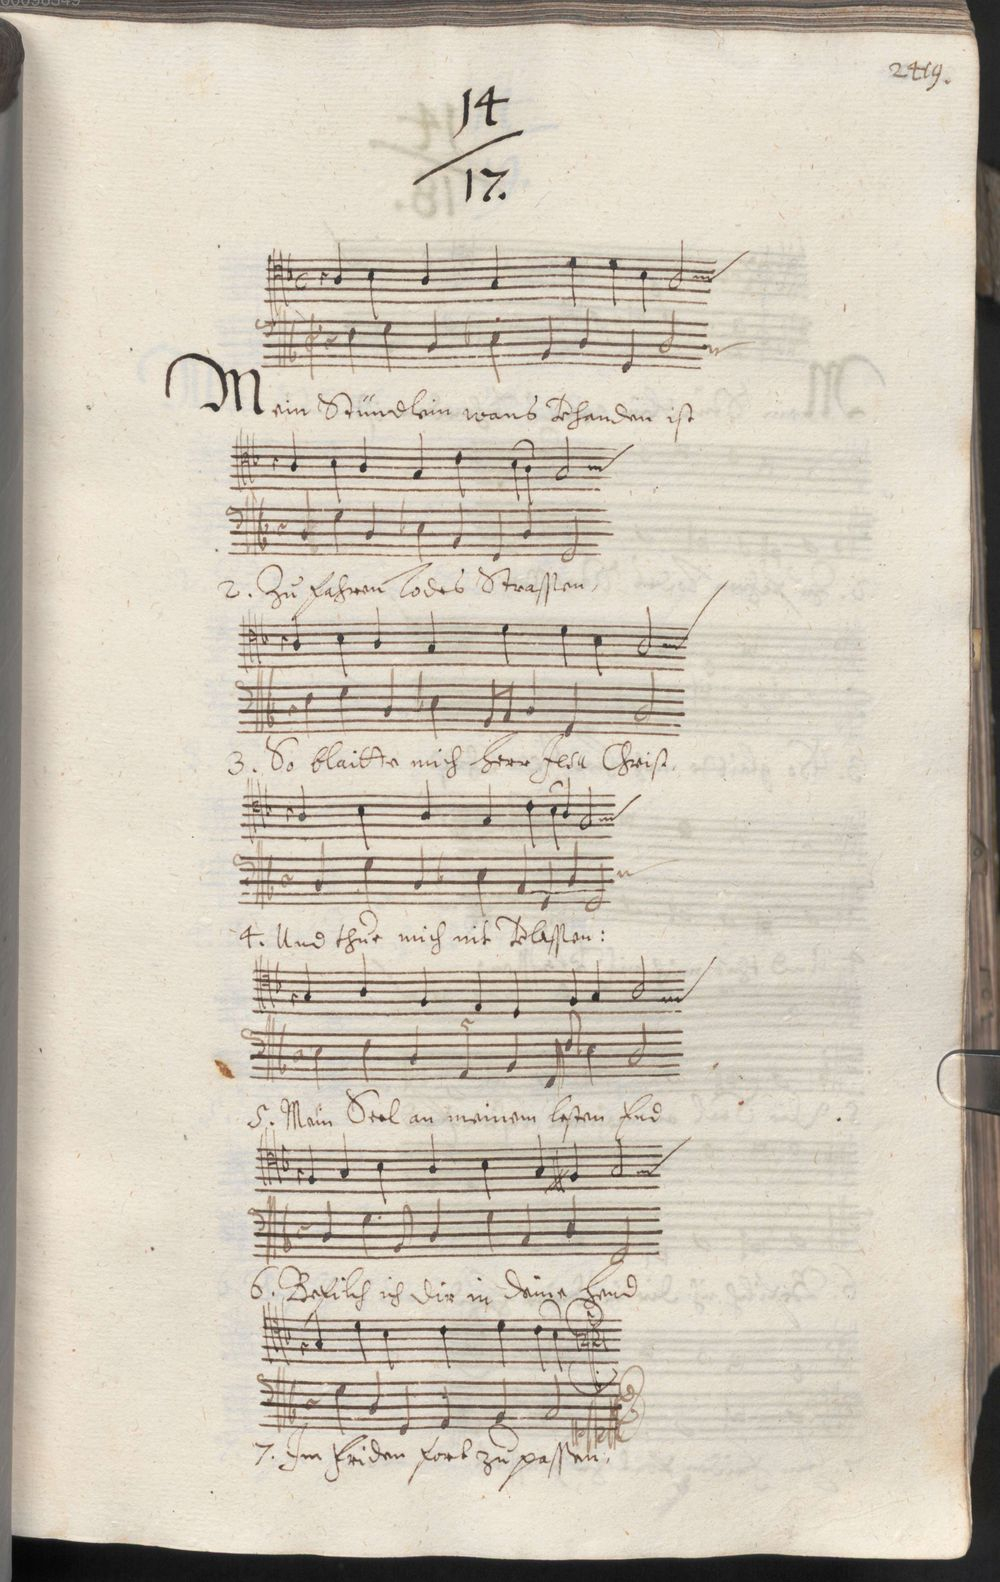 2419.
14
17.
Mein Stündlein wans vorhanden ist
2. Zu fahren Todes Strassen,
3. So blaitte mich Herr Jesu Christ,
4. Und thue mich nit verlassen:
5. Mein Seel an meinem lesten End
6. Befilch ich dir in deine Hend
7. Im Friden fort zu passen.